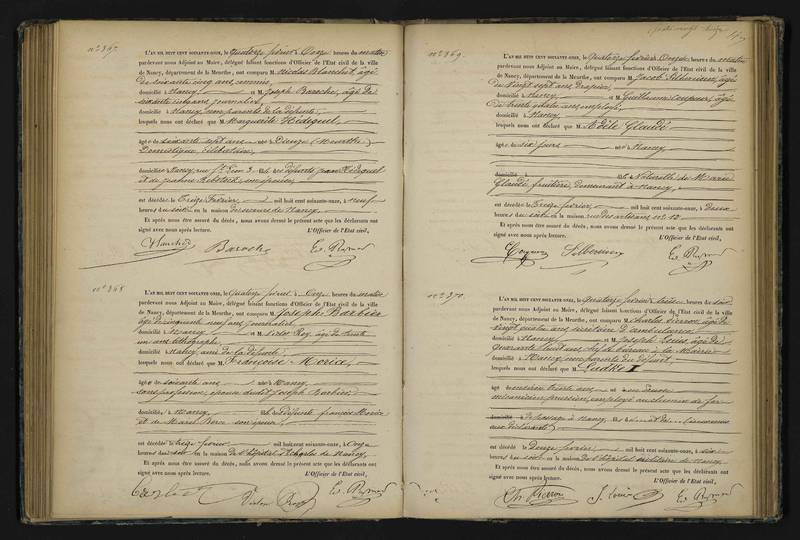 n° 367.
L'AN MIL HUIT CENT SOIXANTE-ONZE, le quatorze février à Onze heures du matin
pardevant nous Adjoint au Maire, délégué faisant fonctions d'Officier de l'État civil de la ville
de Nancy, département de la Meurthe, ont comparu M. Nicolas Blanchet, âgé
de soixante cinq ans
domicilié à Nancy, et M. Joseph Baroche, âgé de
soixante ans journalier
domicilié à Nancy, non parents de la défunte;
lesquels nous ont déclaré que M. Marguerite
âgée de soixante sept ans née à Dieuze (Meurthe)
Domestique, Célibataire,
domiciliée à Nancy, rue St Léon 3. fille des défunts Jean
et de Jeanne son épouse,
est décédée le Treize Février, mil huit cent soixante-onze, à neuf
heures du soir en la maison de secours de Nancy.
Et après nous être assuré du décès, nous avons dressé le présent acte que les déclarants ont
signé avec nous après lecture. L'Officier de l'État civil,
Blanchet Baroche
n° 368
L'AN MIL HUIT CENT SOIXANTE-ONZE, le quatorze février à Onze heures du matin
pardevant nous Adjoint au Maire, délégué faisant fonctions d'Officier de l'État civil de la ville
de Nancy, département de la Meurthe, ont comparu M. Joseph Barbier
âgé de cinquante neuf ans journalier
domicilié à Nancy et M. Victor Roy, âgé de trente
un ans lithographe,
domicilié à Nancy ami de la défunte;
lesquels nous ont déclaré que M. Françoise Moria,
âgée de soixante ans née à Nancy,
sans profession, épouse dudit Joseph Barbier,
domiciliée à Nancy, fille de défunts François Moria
et de son épouse,
est décédée le treize février mil huit cent soixante-onze, à Onze
heures du soir en la maison de l'hôpital St Charles de Nancy.
Et après nous être assuré du décès, nous avons dressé le présent acte que les déclarants ont
signé avec nous après lecture. L'Officier de l'État civil,
Victor Roy
n° 369.
L'AN MIL HUIT CENT SOIXANTE-ONZE, le quatorze février à Onze heures du matin
pardevant nous Adjoint au Maire, délégué faisant fonctions d'Officier de l'État civil de la ville
de Nancy, département de la Meurthe, ont comparu M. Jacob Silbermann, âgé
de vingt sept ans drapier,
domicilié à Nancy et M. Guillaume âgé
de trente quatre ans employé,
domicilié à Nancy,
lesquels nous ont déclaré que M. Adèle Glaudé
âgée de six jours née à Nancy
domiciliée à fille Naturelle de Marie
Glaudé, fruitière, demeurant à Nancy,
est décédée le Treize février, mil huit cent soixante-onze, à Deux
heures du soir en la maison rue des artisans n° 12
Et après nous être assuré du décès, nous avons dressé le présent acte que les déclarants ont
signé avec nous après lecture. L'Officier de l'État civil,
n° 370.
L'AN MIL HUIT CENT SOIXANTE-ONZE, le quatorze février à trois heures du soir
pardevant nous Adjoint au Maire, délégué faisant fonctions d'Officier de l'État civil de la ville
de Nancy, département de la Meurthe, ont comparu M. Charles Pierron âgé de
vingt quatre ans
domicilié à Nancy et M. Joseph Louis, âgé de
quarante huit ans chef de bureau à la Mairie
domicilié à Nancy, non parents du défunt,
lesquels nous ont déclaré que M. Ludke
âgé environ trente ans né
mécanicien prussien, employé au chemin de fer
domicilié de passage à Nancy fils
aux déclarants,
est décédé le Douze février, mil huit cent soixante-onze, à six
heures du soir en la maison de l'hôpital militaire de Nancy
Et après nous être assuré du décès, nous avons dressé le présent acte que les déclarants ont
signé avec nous après lecture. L'Officier de l'État civil,
Ch. Pierron J. Louis